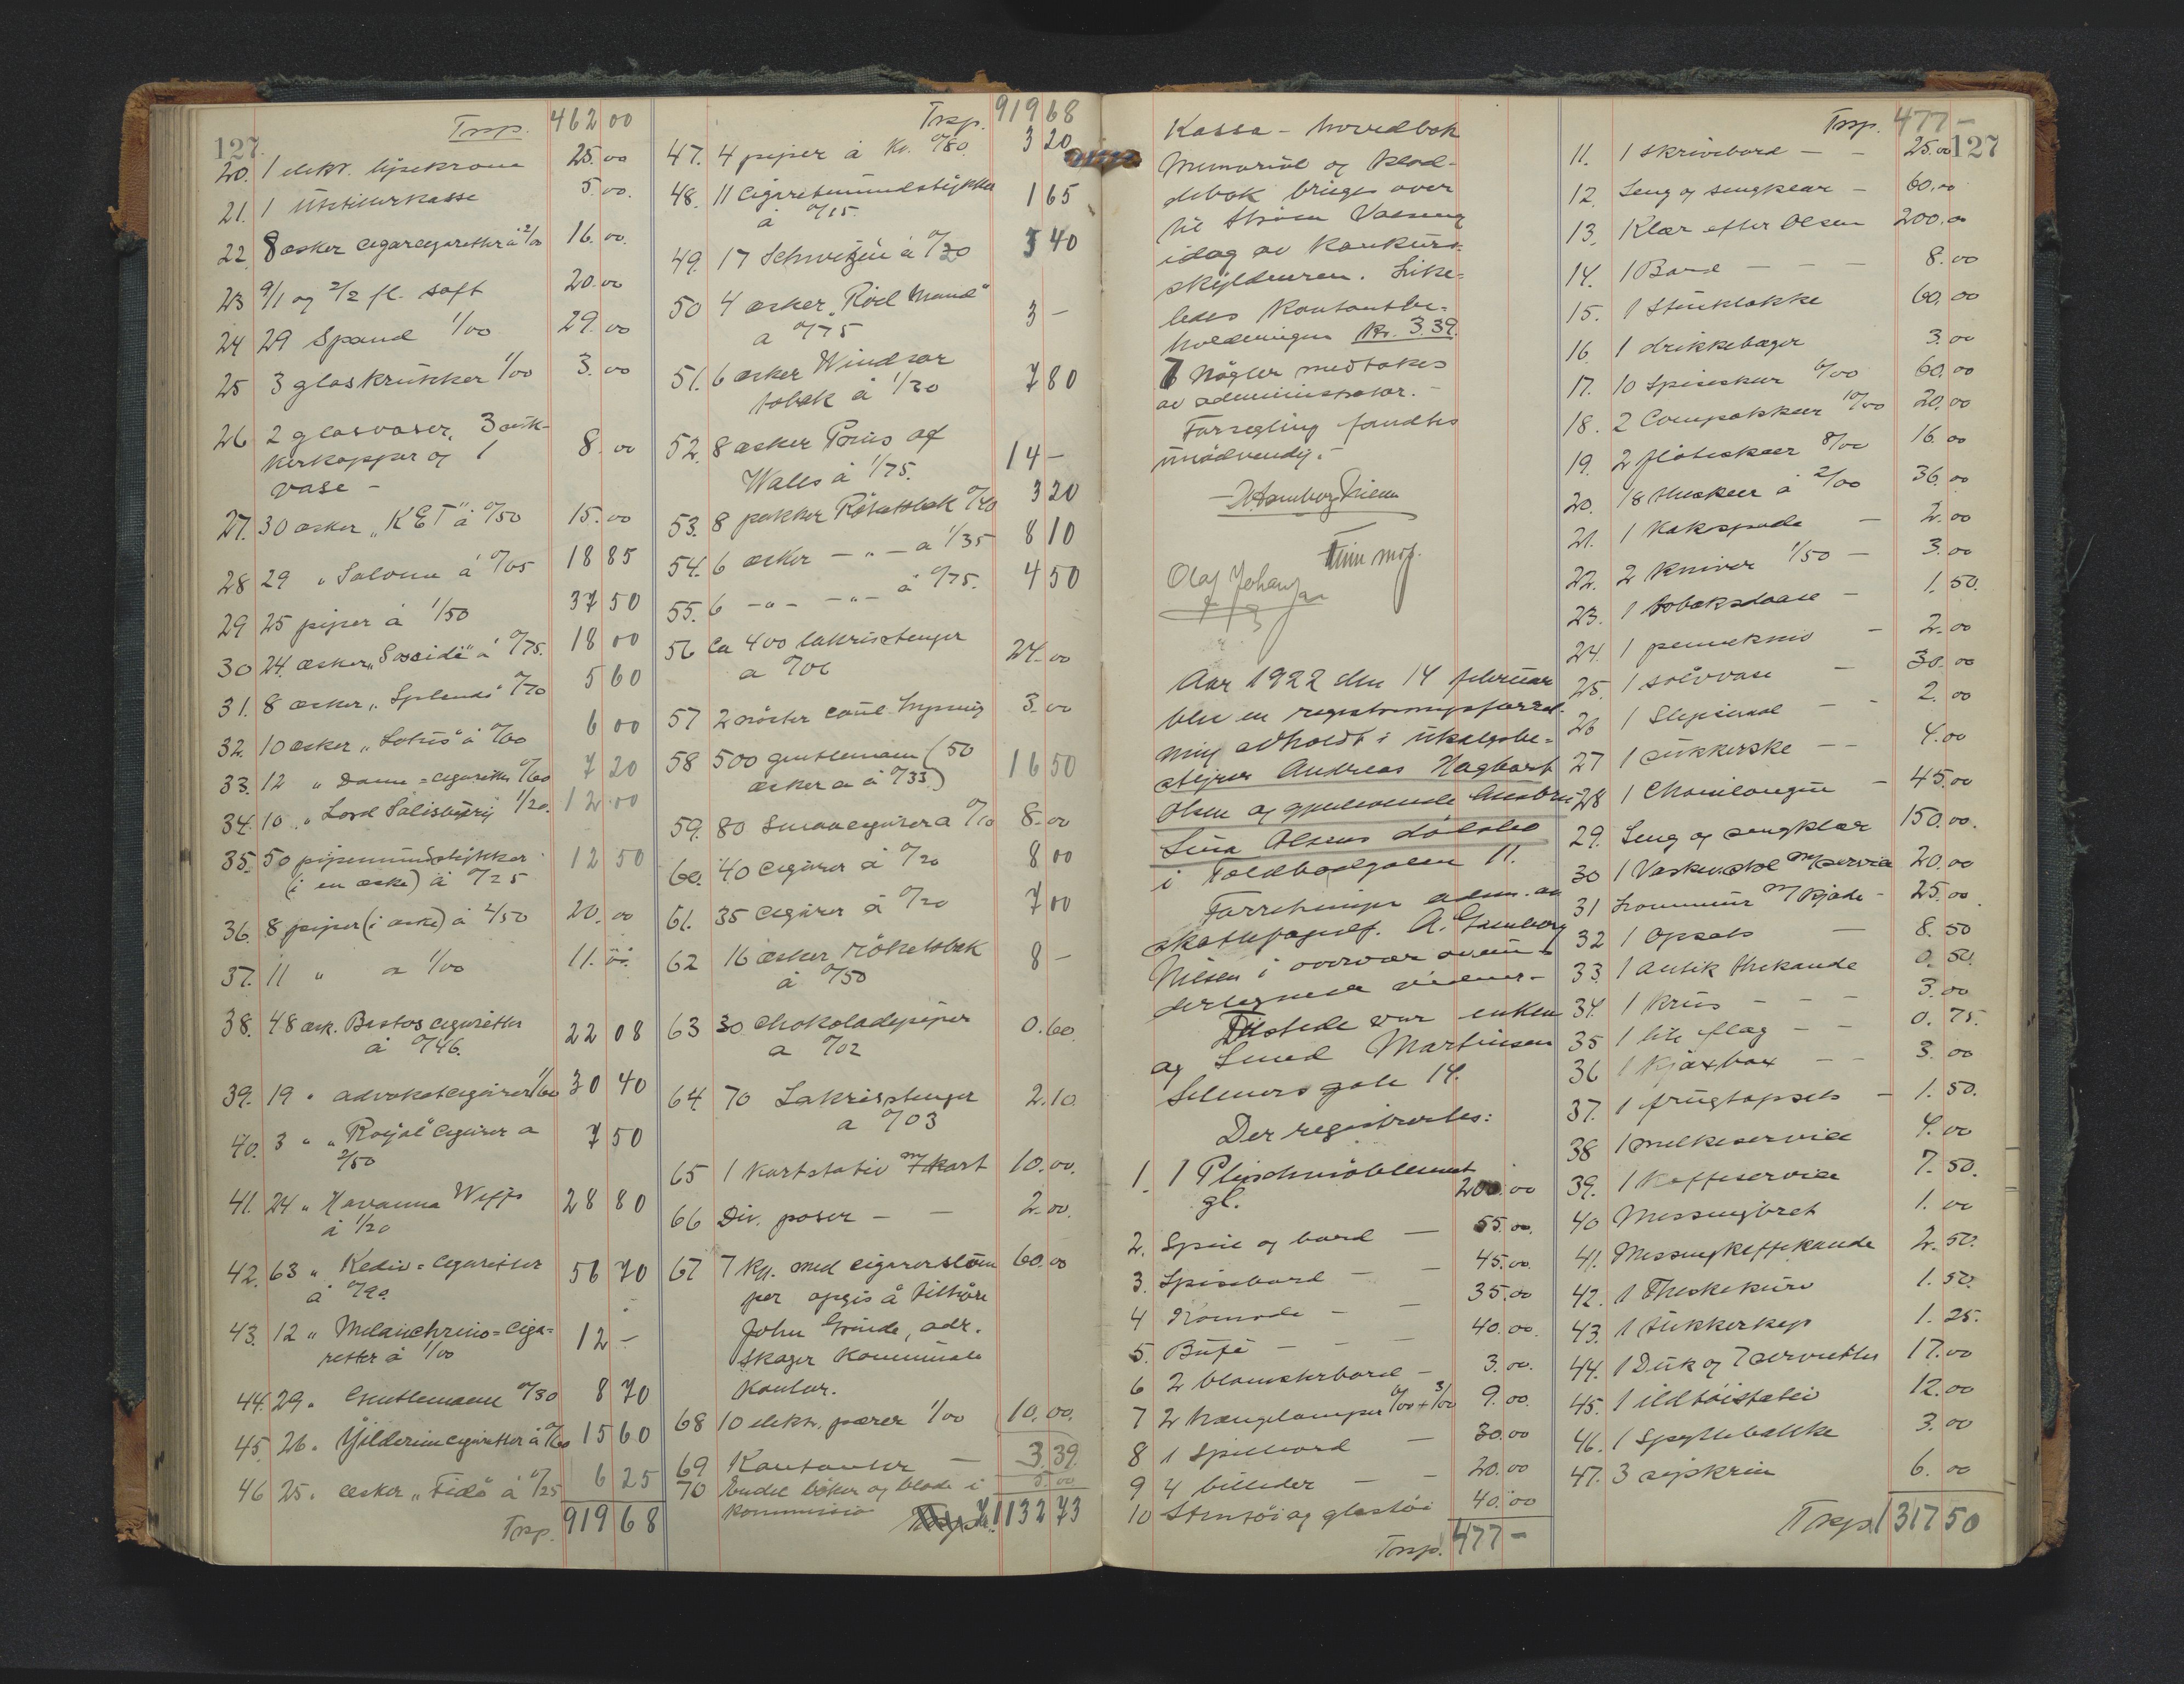 127
Trsp. 462 00
20. 1 elektr. lysekrone 25.00
21. 1 Utstillerkasse 5.00.
22. 8 æsker cigarcigaretter à 2/00 16.00.
23 9/1 og 2/2 fl. saft 20.00
24 29 Spand 1/00 29.00
25 3 glaskrukker 1/00 3.00
26 2 glasvaser, 3 suk-
kerkopper og 1 8.00
vase -
27. 30 æsker "KET" à 0/50 15.00
28 29 " Salome à 0/65 18 85
29 25 piper à 1/50 37 50
30 24 æsker "Sossidi" à 0/75. 18 00
31. 8 æsker "Splendi" 0/70 5 60
32. 10 æsker "Lotus" à 0/60 6 00
33. 12 " Dame-cigaretter 0/60 7 20
34. 10 " Lord Salisbury 1/20. 12.00
35. 50 pipemundstykker
(i en æske) à 0/25 12 50
36. 8 piper (i æske) à 2/50 20.00
37. 11 " a 1/00 11.00.
38. 48 æsk. Bestos cigaretter
à 0/46. 22 08
39. 19 " advokatcigarer 1/60 30 40
40. 3 " "Royal" cigarer a
2/50 7 50
41. 24 " Havanna Wiffs
à 1/20 28 80
42. 63 " Kediv-cigaretter
à 0/90. 56 70
43. 12 " Melanchrino-ciga-
retter à 1/00 12 -
44. 29 " Gentlemann 0/30 8 70
45. 26 " Yilderim cigaretter à 0/60 15 60
46 25 " æsker "Fido" à 0/25 6 25
Trsp. 919 68
Trsp. 919 68
47. 4 piper à Kr. 0/80. 3 20
48. 11 cigaretmundstykker
à 0/15. 1 65
49. 17 Schweizer à 0/20 3 40
50 4 æsker "Röd Mand"
a 0/75 3 -
51. 6 æsker Windsor
tobak à 1/30 7 80
52. 8 æsker Prins of
Wales à 1/75. 14 -
53. 8 pakker Röketobak 0/40 3 20
54. 6 æsker - " - a 1/35 8 10
55. 6 - " - - " - à 0/75. 4 50
56 Ca 400 lakrisstenger
a 0/06 24.00
57 2 3.00
58 500 gentlemann (50
æsker a à 0/33) 16 50
59. 80 Smaacigarer a 0/10 8.00
60. 40 cigarer à 0/20 8 00
61. 35 cigarer à 0/20 7 00
62 16 æsker röketobak
à 0/50 8 -
63 30 chokoladepiper
a 0/02 0.60.
64 70 Lakrisstenger
a 0/03 2.10.
65 1 kartstativ m/kart 10.00.
66 Div. poser - - 2.00.
67 7 kg. med cigarer 60.00
per opgis å tilhöre
John Grinde, adr.
Skager kommunale
Kontor.
68 10 elektr. pærer 1/00 10.00.
69 Kontanter - 3.39.
70 Endel böker og blade i 5.00
kommission
1132 73
Kassa - hovedbok
Memorial og klad-
debok bringes over
til
idag av konkurs-
skyldneren. Like-
ledes kontantbe-
holdningen Kr. 3.39.
7 Nøgler medtokes
av administrator. -
Forsegling fandtes
unödvendig. -
Olaf Johansen
Aar 1922 den 14 februar
blev en registreringsforret-
ning avholdt i utkalgsbe-
styrer Andreas Hagbart
Olsen og gjenlevende
Lina Olsens dödsbo
i Toldbodgaten 11.
Forretningen adm. av
skattefogdf. A. Hamborg
Nielsen i overvær av un-
dertegnede vidner -
Tilstede var enken
og Smed Martinsen
Selmersgate 14.
Der registrertes:
1. 1 Plüschmöblement
gl. 200.00
2. Speil og bord - 55.00.
3. Spisebord - - 45.00.
4 Komode - - 35.00
5. Bufé - - 40.00.
6 2 blomsterbord - 3.00.
7 2 hængelamper 6/00 + 3/00 9.00.
8 1 Spillebord - 30.00
9 4 billeder - - 20.00
10 Stentöi og glastöi 40.00
Trsp. 477 -
Trsp. 477 -
127
11. 1 skrivebord - - 25.00
12. Seng og sengklær - 60.00
13. Klær efter Olsen 200.00
14. 1 Bord - - - 8.00
15. 1 Stueklokke 60.00
16. 1 drikkebæger 3.00
17. 10 Spiseskeer 6/00 60.00
18. 2 Compotskeer 10/00 20.00
19. 2 flöteskeer 8/00 16.00
20. 18 theskeer à 2/00 36.00
21. 1 Kakespade - 2.00
22. 2 kniver 1/50 - 3.00
23. 1 tobaksdaase - 1.50.
24. 1 pennekniv - 2.00
25. 1 sölvvase - 30.00
26 1 Slipsnaal - - 2.00
27 1 sukkerske - - 4.00
28 1 Chaiselongue - 45.00
29. Seng og sengklær 150.00.
30 1 Vaskevstol m/servise 20.00
31 Kommune m/ kjole - 25.00.
32 1 Opsats - 8.50
33. 1 antik thekande 0.50.
34. 1 Krus - - - 3.00
35 1 lite flag - - 0.75.
36 1 Kjæxbox - - 3.00
37. 1 frugtopsats - 1.50.
38 1 melkeservise 4.00
39. 1 kaffeservise 7.50.
40 Messingbret 1.00
41. Messingkaffekande 2.50.
42. 1 Theskekurv 1.50.
43. 1 sukkerkop 1.25.
44. 1 Duk og 7 servietter 17.00
45. 1 ildtöistativ 12.00
46. 1 Spyttebakke 3.00
47. 3 syskrin 6.00
Trsp. 1317 50